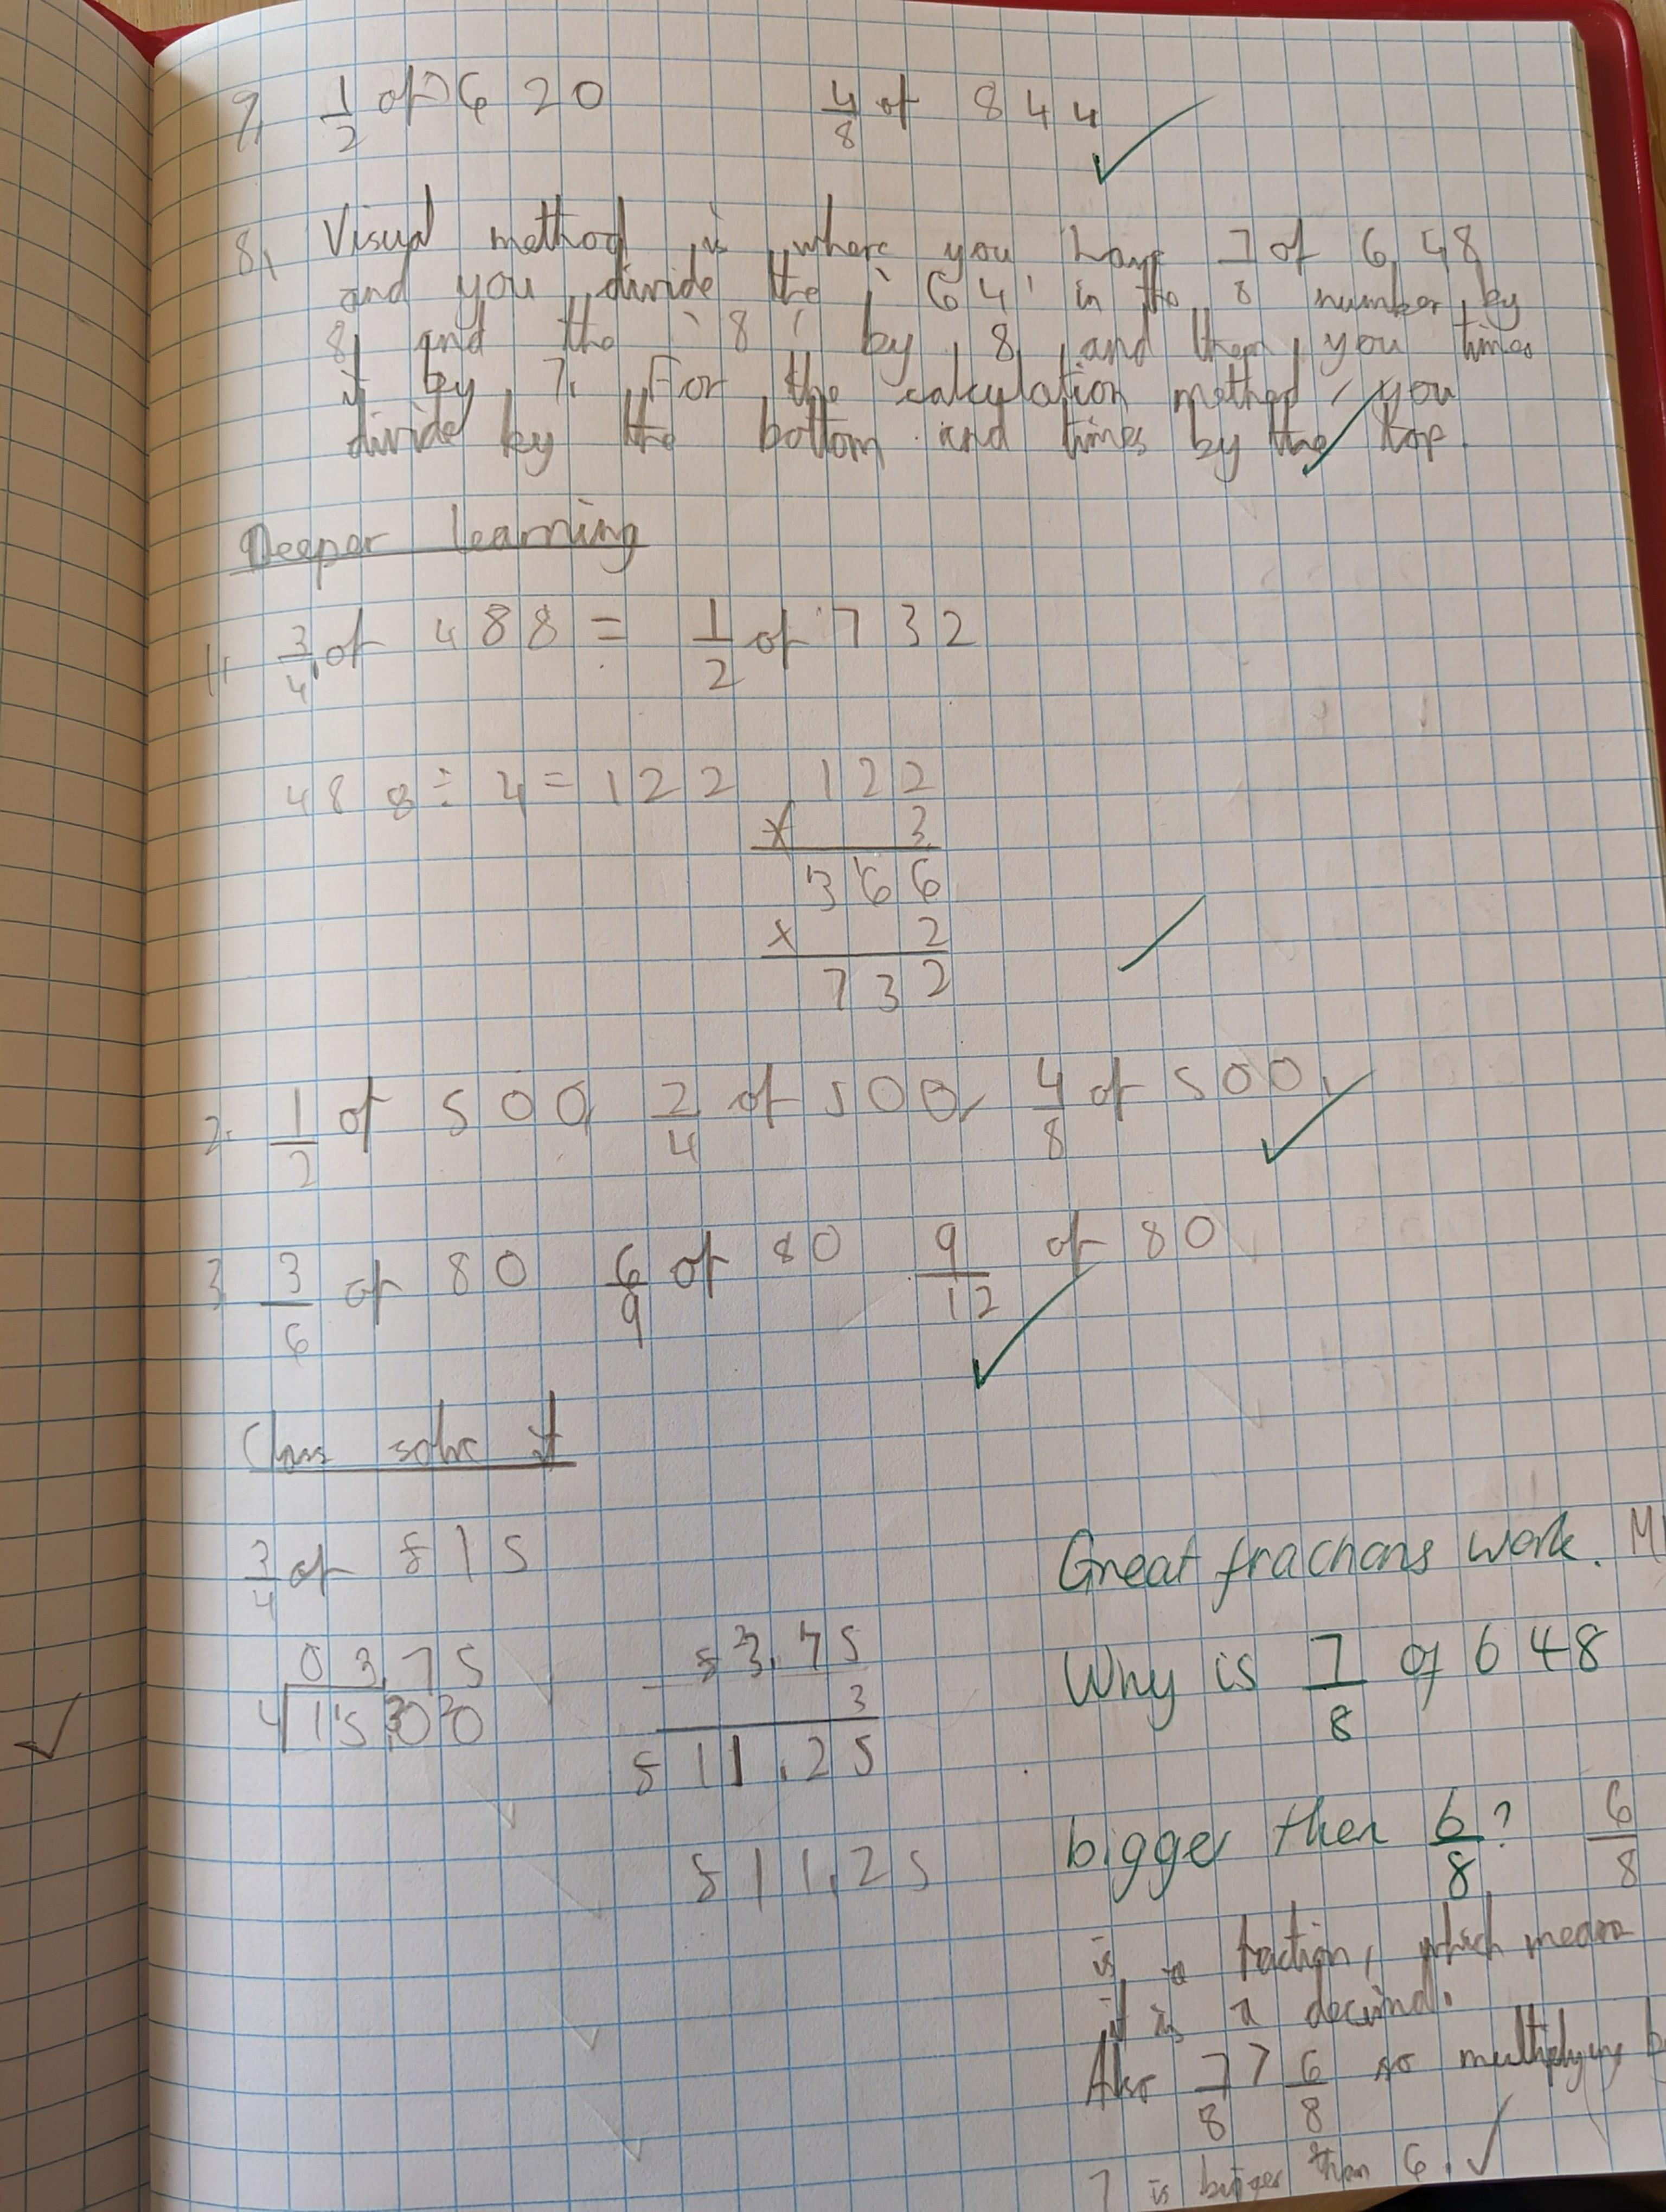 7, 1/2 of 620 4/8 of 844
8, Visual method is where you have 7/8 of 648
and you divide the '64' in the number by
8, and the '8' by 8, and then you times
it by 7. For the calculation method, you
divide by the bottom and times by the top.
Deeper learning
1. 3/4 of 488 = 1/2 of 732
488 ÷ 4 = 122 122
x 3
366
x 2
732
2. 1/2 of 500, 2/4 of 500, 4/8 of 500,
3 3/6 of 80 6/9 of 80 9/12 of 80
Class solve it
3/4 of £15
03.75
4 15.00
£3.75
3
£11.25
£11.25
Great fractions work.
Why is 7/8 of 648
bigger then 6/8? 6/8
is a fraction, which means
it is a decimal.
Also 7/8 > 6/8 so multiplying
7 is bigger than 6.